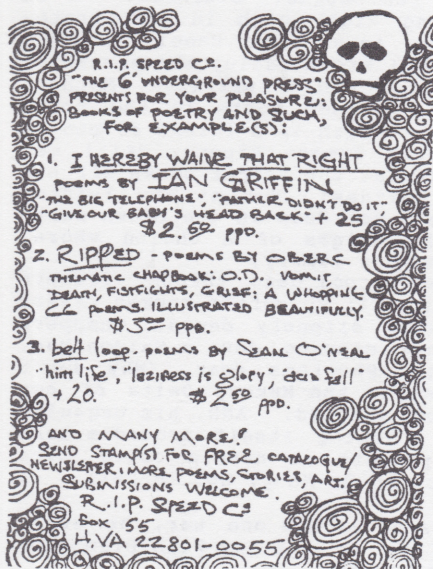 R.I.P. SPEED CO.
"THE 6' UNDERGROUND PRESS"
PRESENTS FOR YOUR PLEASURE:
BOOKS OF POETRY AND SUCH,
FOR EXAMPLE(S):
1. I HEREBY WAIVE THAT RIGHT
POEMS BY IAN GRIFFIN
"THE BIG TELEPHONE"; "FATHER DIDN'T DO IT";
"GIVE OUR BABY'S HEAD BACK" + 25
$2.50 PPD.
2. RIPPED - POEMS BY OBERC
THEMATIC CHAPBOOK: O.D., VOMIT,
DEATH, FISTFIGHTS, GRIEF: A WHOPPING
66 POEMS. ILLUSTRATED BEAUTIFULLY.
$3.00 PPD.
3. belt loop. POEMS BY SEAN O'NEAL
"him life", "laziness is glory", "acid fall"
+20. $2.50 PPD.
AND MANY MORE!
SEND STAMP(S) FOR FREE CATALOGUE/
NEWSLETTER! MORE POEMS, STORIES, ART.
SUBMISSIONS WELCOME.
R.I.P. SPEED CO
BOX 55
H. VA 22801-0055